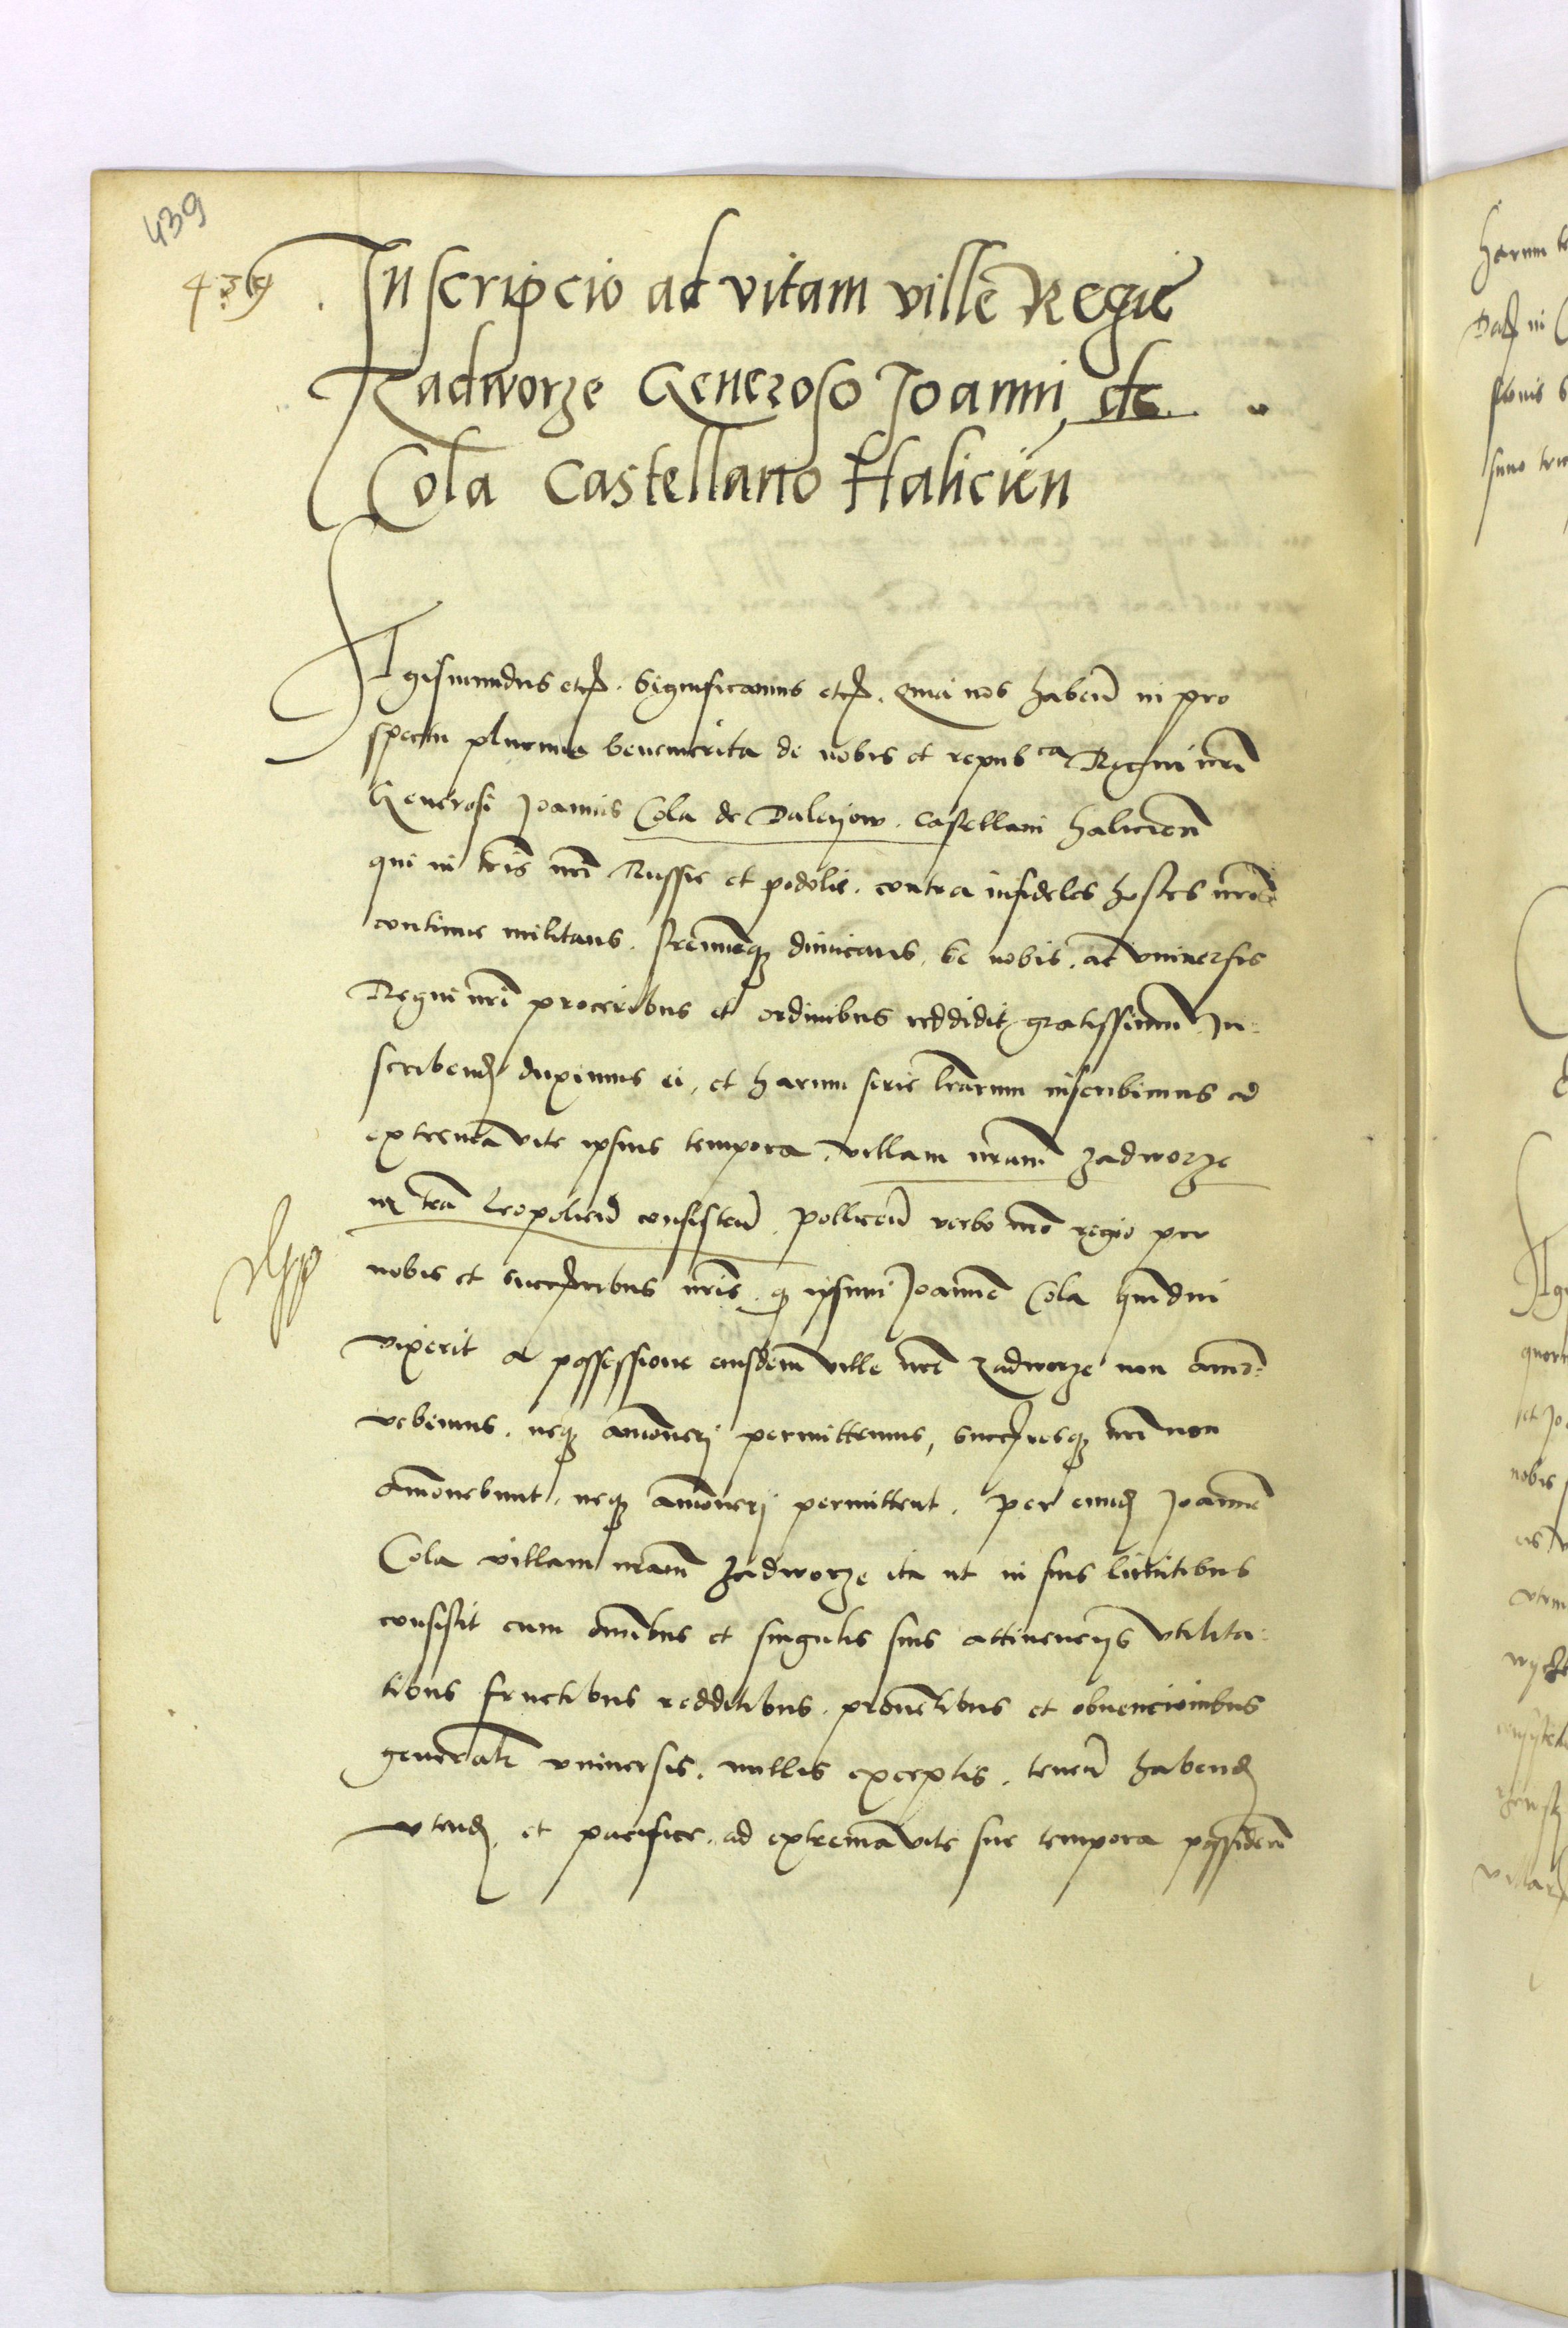 439
439
Inscripcio ad vitam ville Regie
Zadworze Generoso Joanni de
Cola Castellano Halicien
Sigismundus etc. Significamus etc. Quia nos haben in pro
spectu plurima benemerita de nobis et repub ca Regni nri
Generosi Joannis Cola de Daleyow. Castellani halicien
qui in tris nris Russie et podolie. contra infideles hostes nros
continue militans. strenueq dimicans, se nobis. ac universis
Regni nri proceribus et ordinibus reddidit gratissimum In-
scribend duximus ei, et harum serie lrarum inscribimus ad
extrema vite ipsius tempora. villam nram Zadworze
in tra Leopolien consisten. pollicen verbo nro regio pro
nobis et succribus nris. q ipsum Joannem Cola qmdiu
vixerit a possessione eiusdem ville nre Zadworze non amo-
vebimus. neq amoveri permittemus, succresq nri non
amovebunt. neq amoveri permittent. per eund Joannem
Cola villam nram Zadworze ita ut in suis limitibus
consistit cum omnibus et singulis suis attinencys utilita-
tibus fructibus redditibus. proventibus et obvencionibus
generali universis. nullis exceptis. tenen habend
utend. et pacifice. ad extrema vite sue tempora possiden
harum